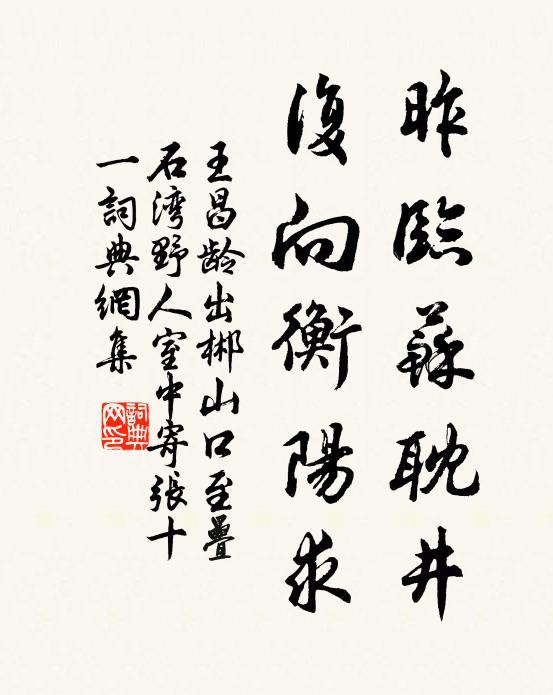 昨臨蘇耽井
復向衡陽求
王昌龄出郴山口至疊
石湾野人室中寄張十
一詞典網集
詞典
网印